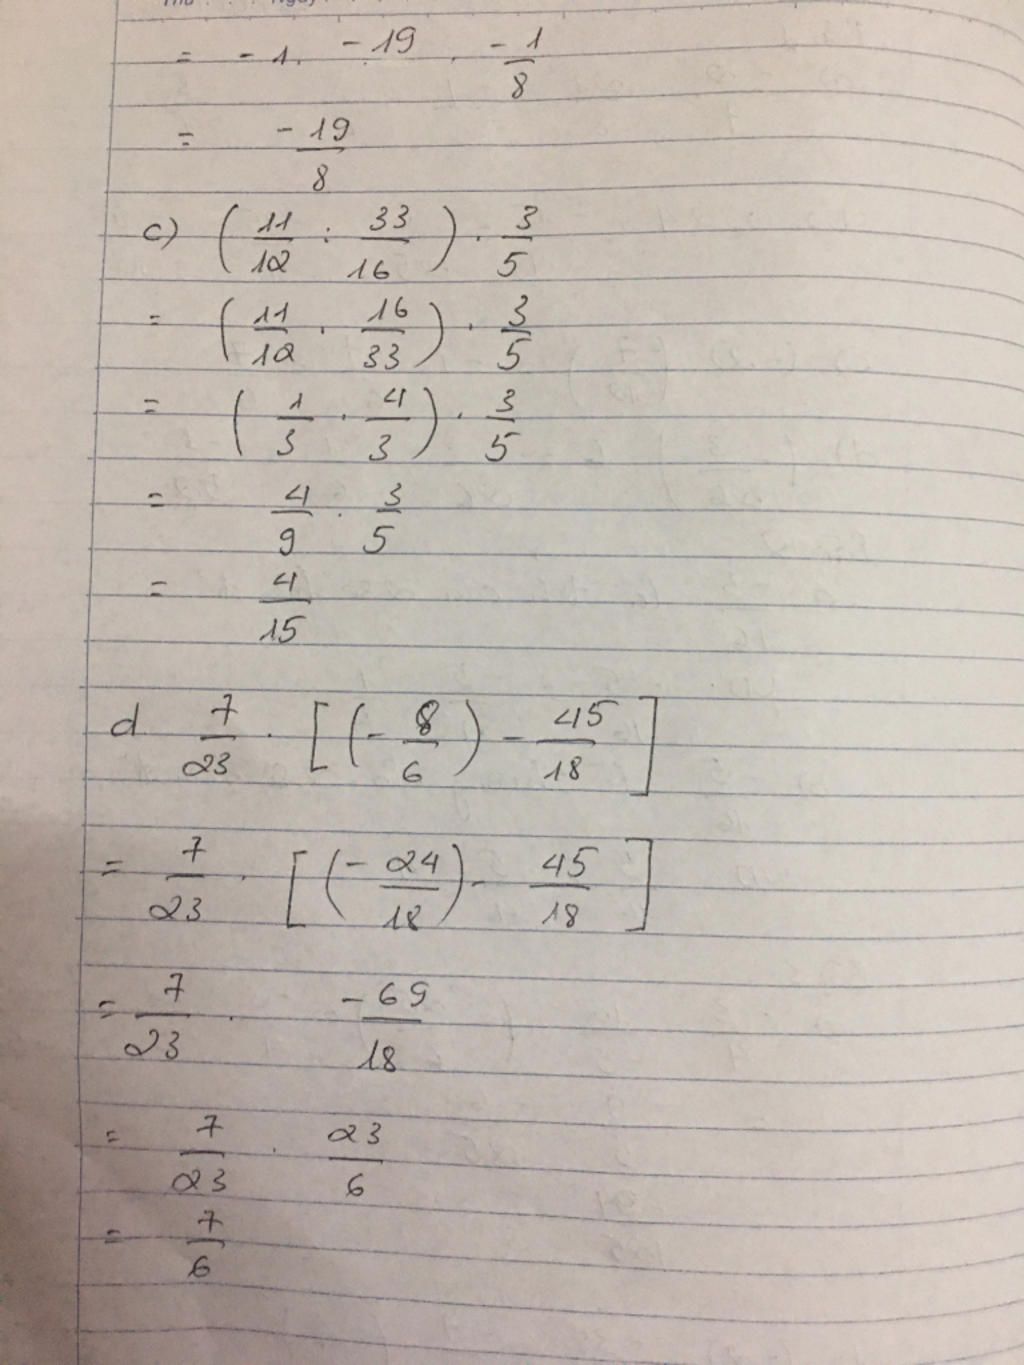 = -1. -19 . -1/8
= -19/8
c) (11/12 : 33/16) . 3/5
= (11/12 . 16/33) . 3/5
= (1/3 . 4/3) . 3/5
= 4/9 . 3/5
= 4/15
d 7/23 . [(-8/6) - 45/18]
= 7/23 . [(-24/18) - 45/18]
= 7/23 . -69/18
= 7/23 . 23/6
= 7/6